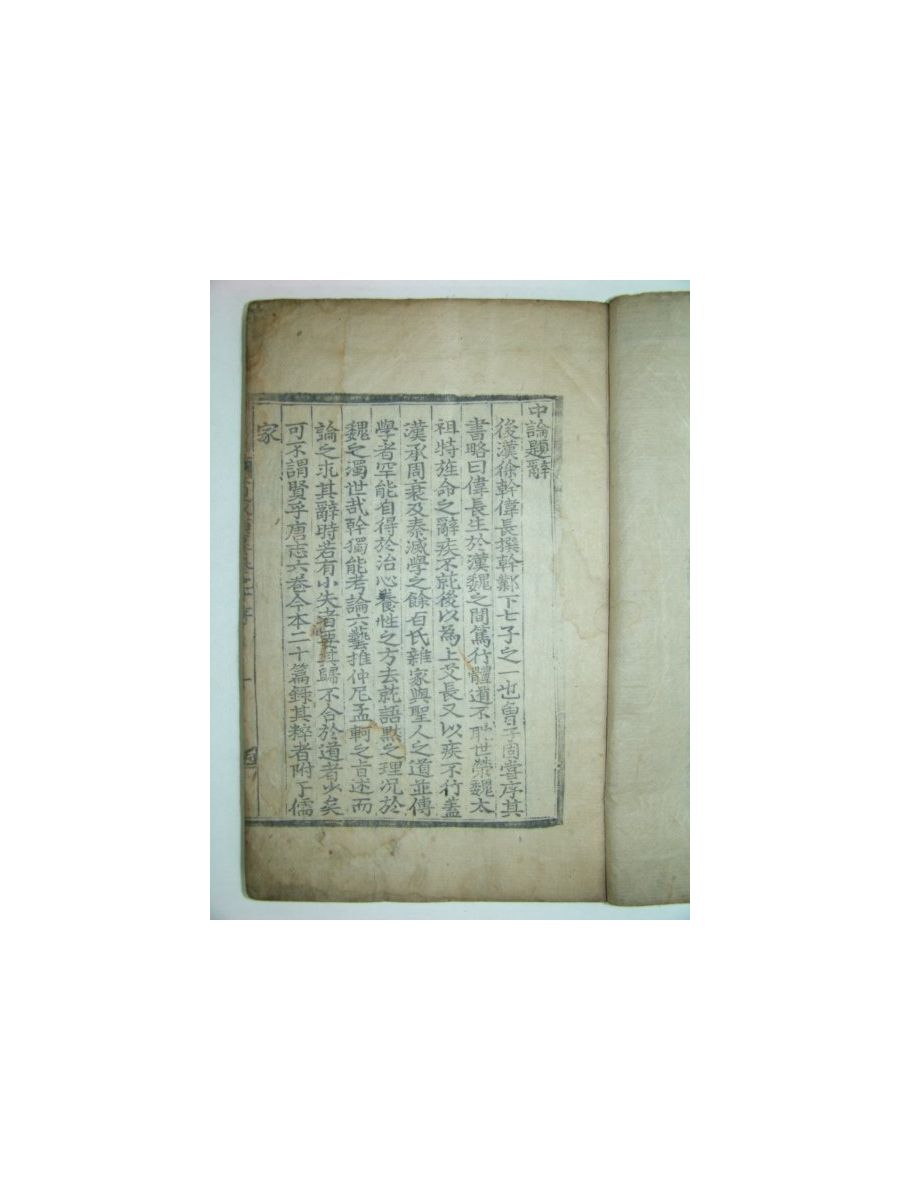 中論題辭
後漢徐幹偉長撰幹鄴下七子之一也曾子固嘗序其
書略曰偉長生於漢魏之間篤行體道不耽世榮魏太
祖特旌命之辭疾不就後以為上艾長又以疾不行蓋
漢承周衰及秦滅學之餘百氏雜家與聖人之道並傳
學者罕能自得於治心養性之方去就語默之理况於
魏之濁世哉幹獨能考論六藝推仲尼孟軻之旨述而
論之求其辭時若有小失者要其歸不合於道者少矣
可不謂賢乎唐志六卷今本二十篇錄其粹者附于儒
家